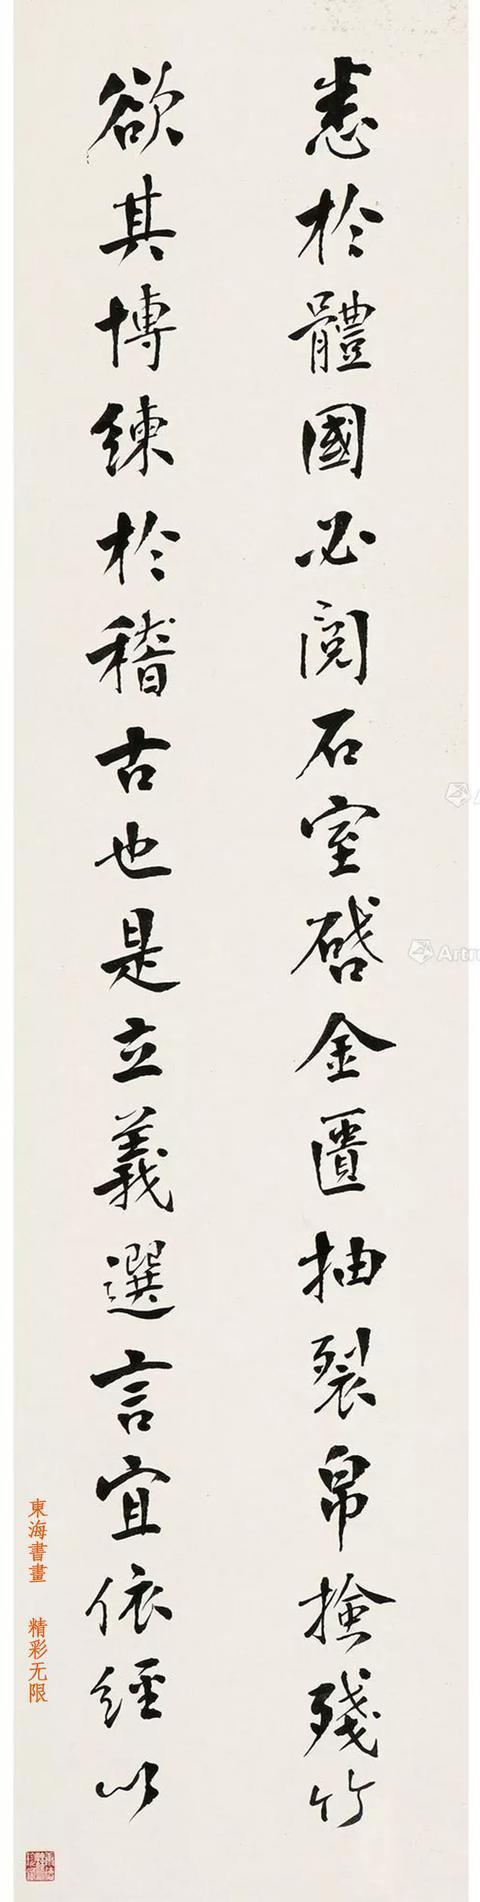 悉於體國必閱石室啓金匱抽裂帛撿殘竹
欲其博練於稽古也是立義選言宜依經以
東海書畫 精彩无限
Artr